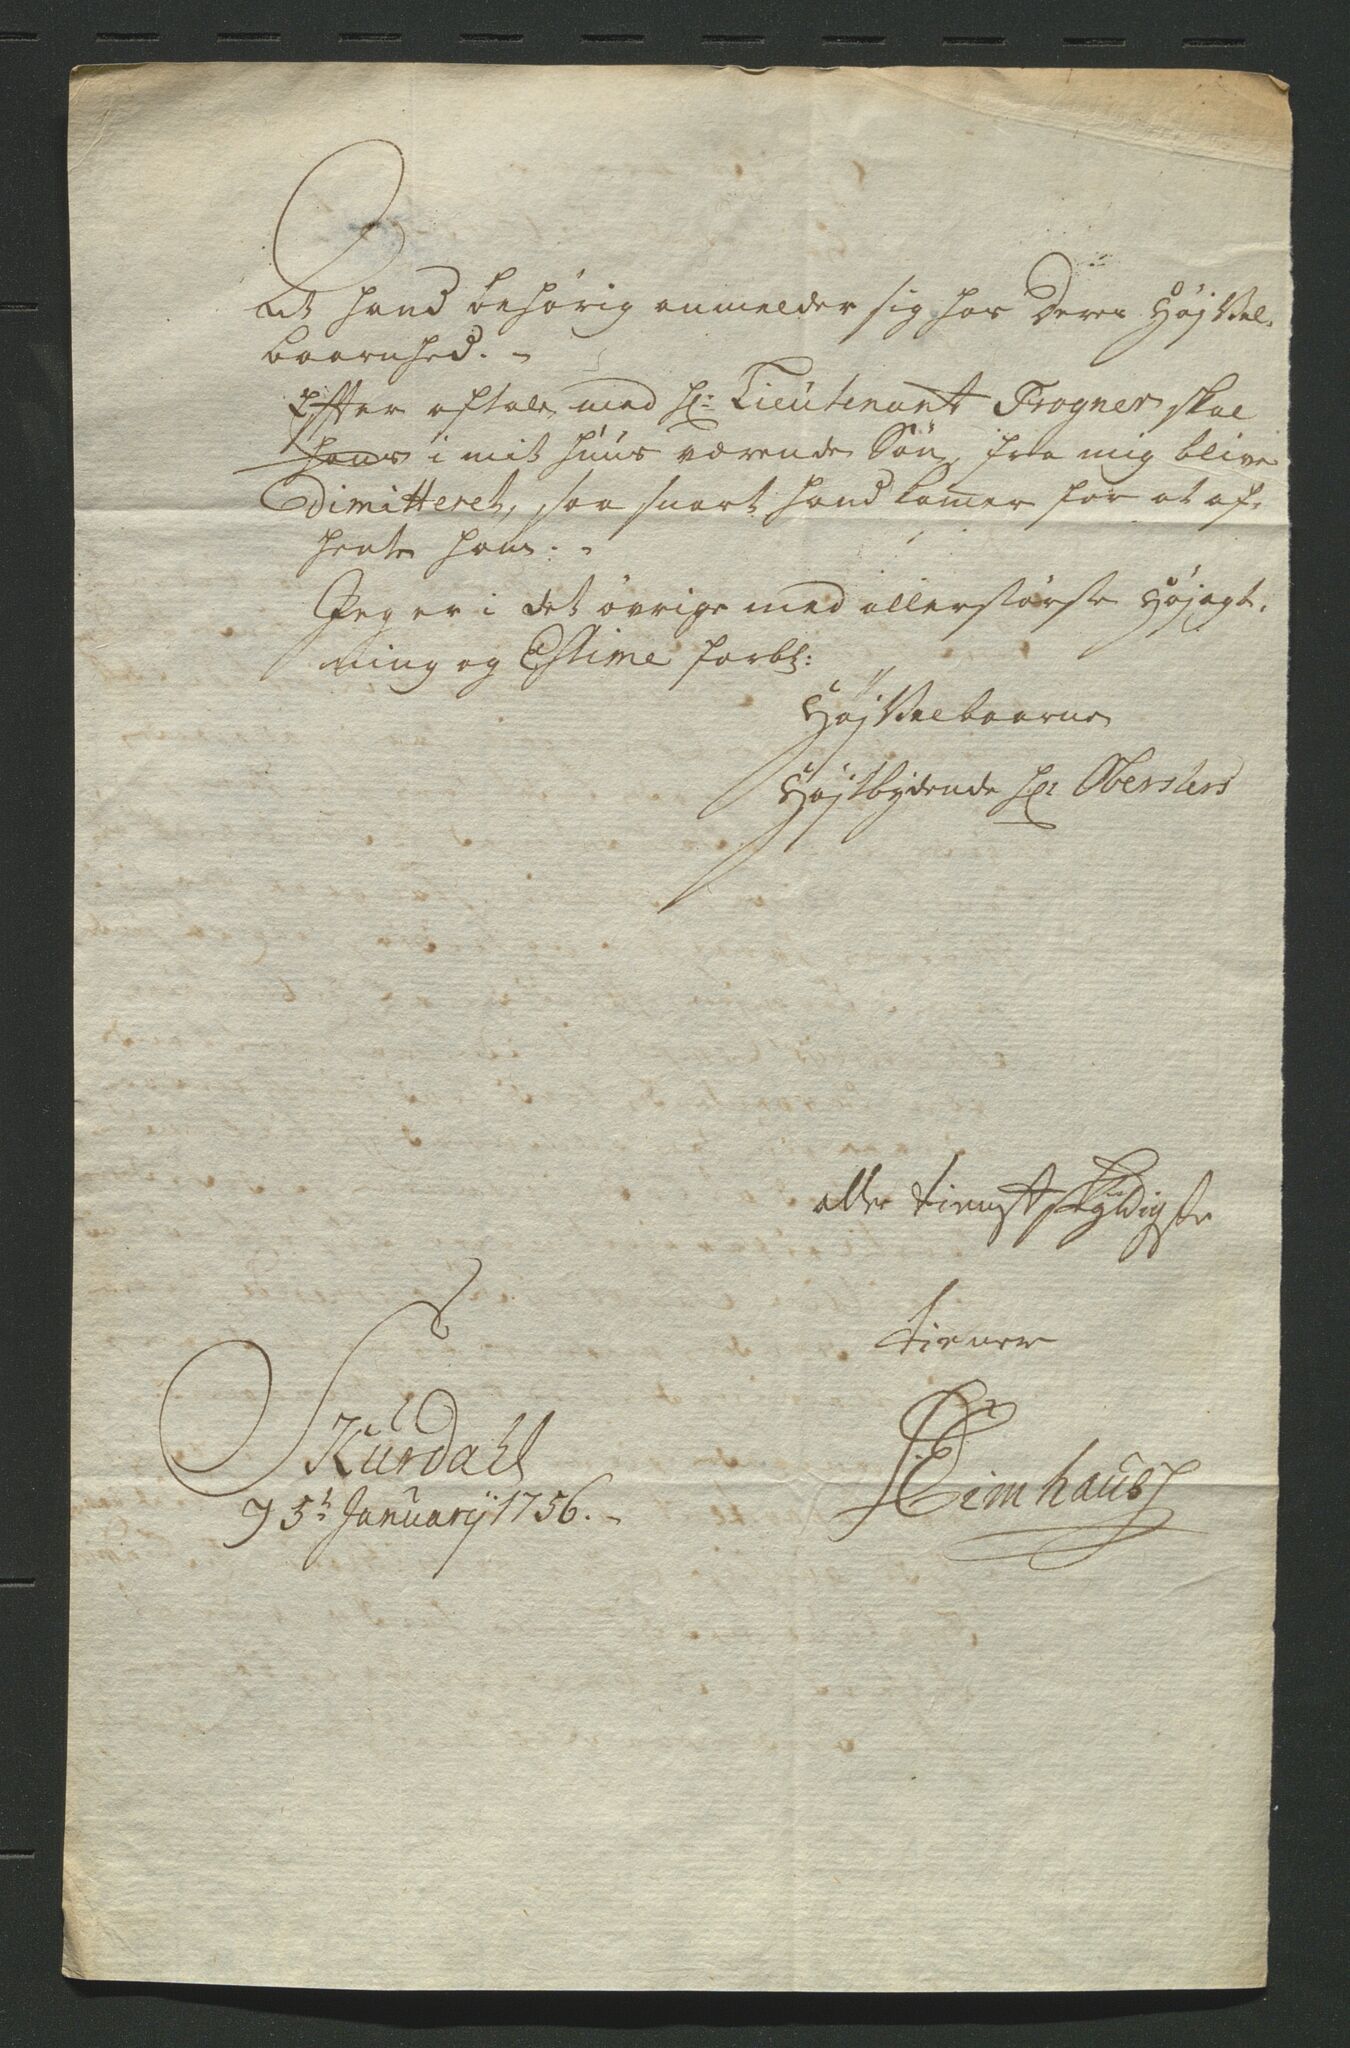 At hand behørig anmelder sig hos Deres HøjVel-
baarenhed. -
Efter aftale med Hr: Lieütenant Frogner skal
hans i mit Huus værende Søn, fra mig blive
Dimitteret, saa snart hand kommer for at af-
hente ham. -
Jeg er i det øvrige med allerstørste Højagt-
ning og Estime forbl:
HøjVelbaarne
Højtbydende Hr: Obersters
aller tienstskyldigste
tiener
Skürdahl
J Eimhaus
d 5t January 1756. -